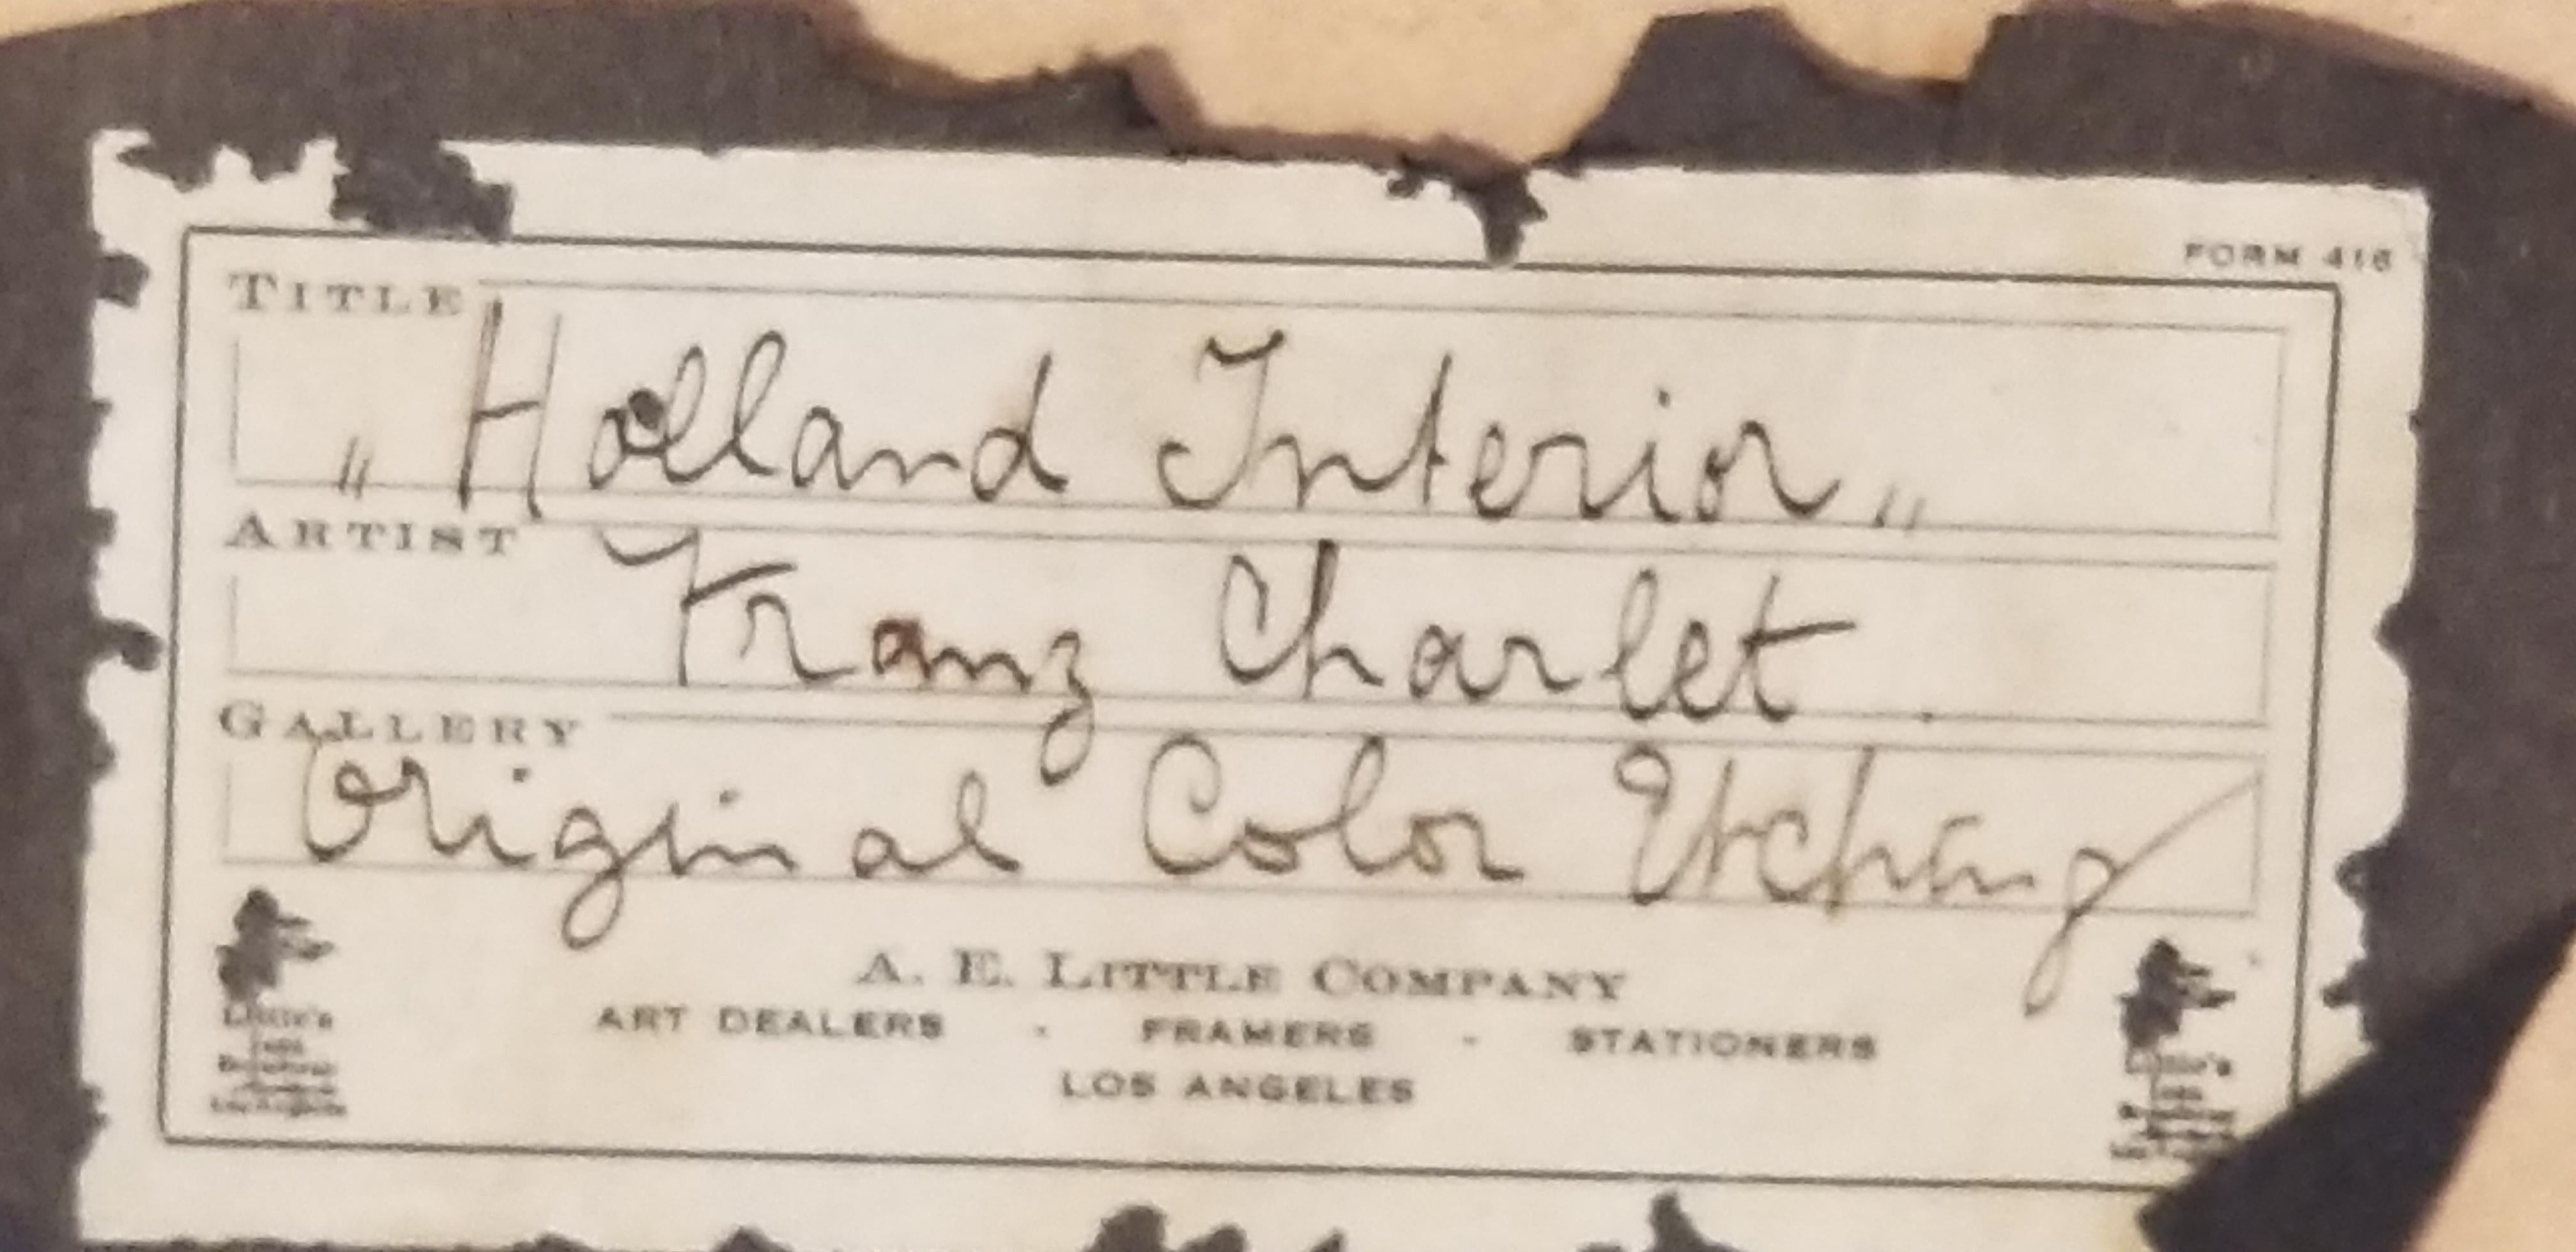 FORM 416
TITLE
„ Holland Interior „
ARTIST
Franz Charlet.
GALLERY
Original Color Etching
A. E. LITTLE COMPANY
ART DEALERS - FRAMERS - STATIONERS
LOS ANGELES
Little's
Broadway
Los Angeles
Little's